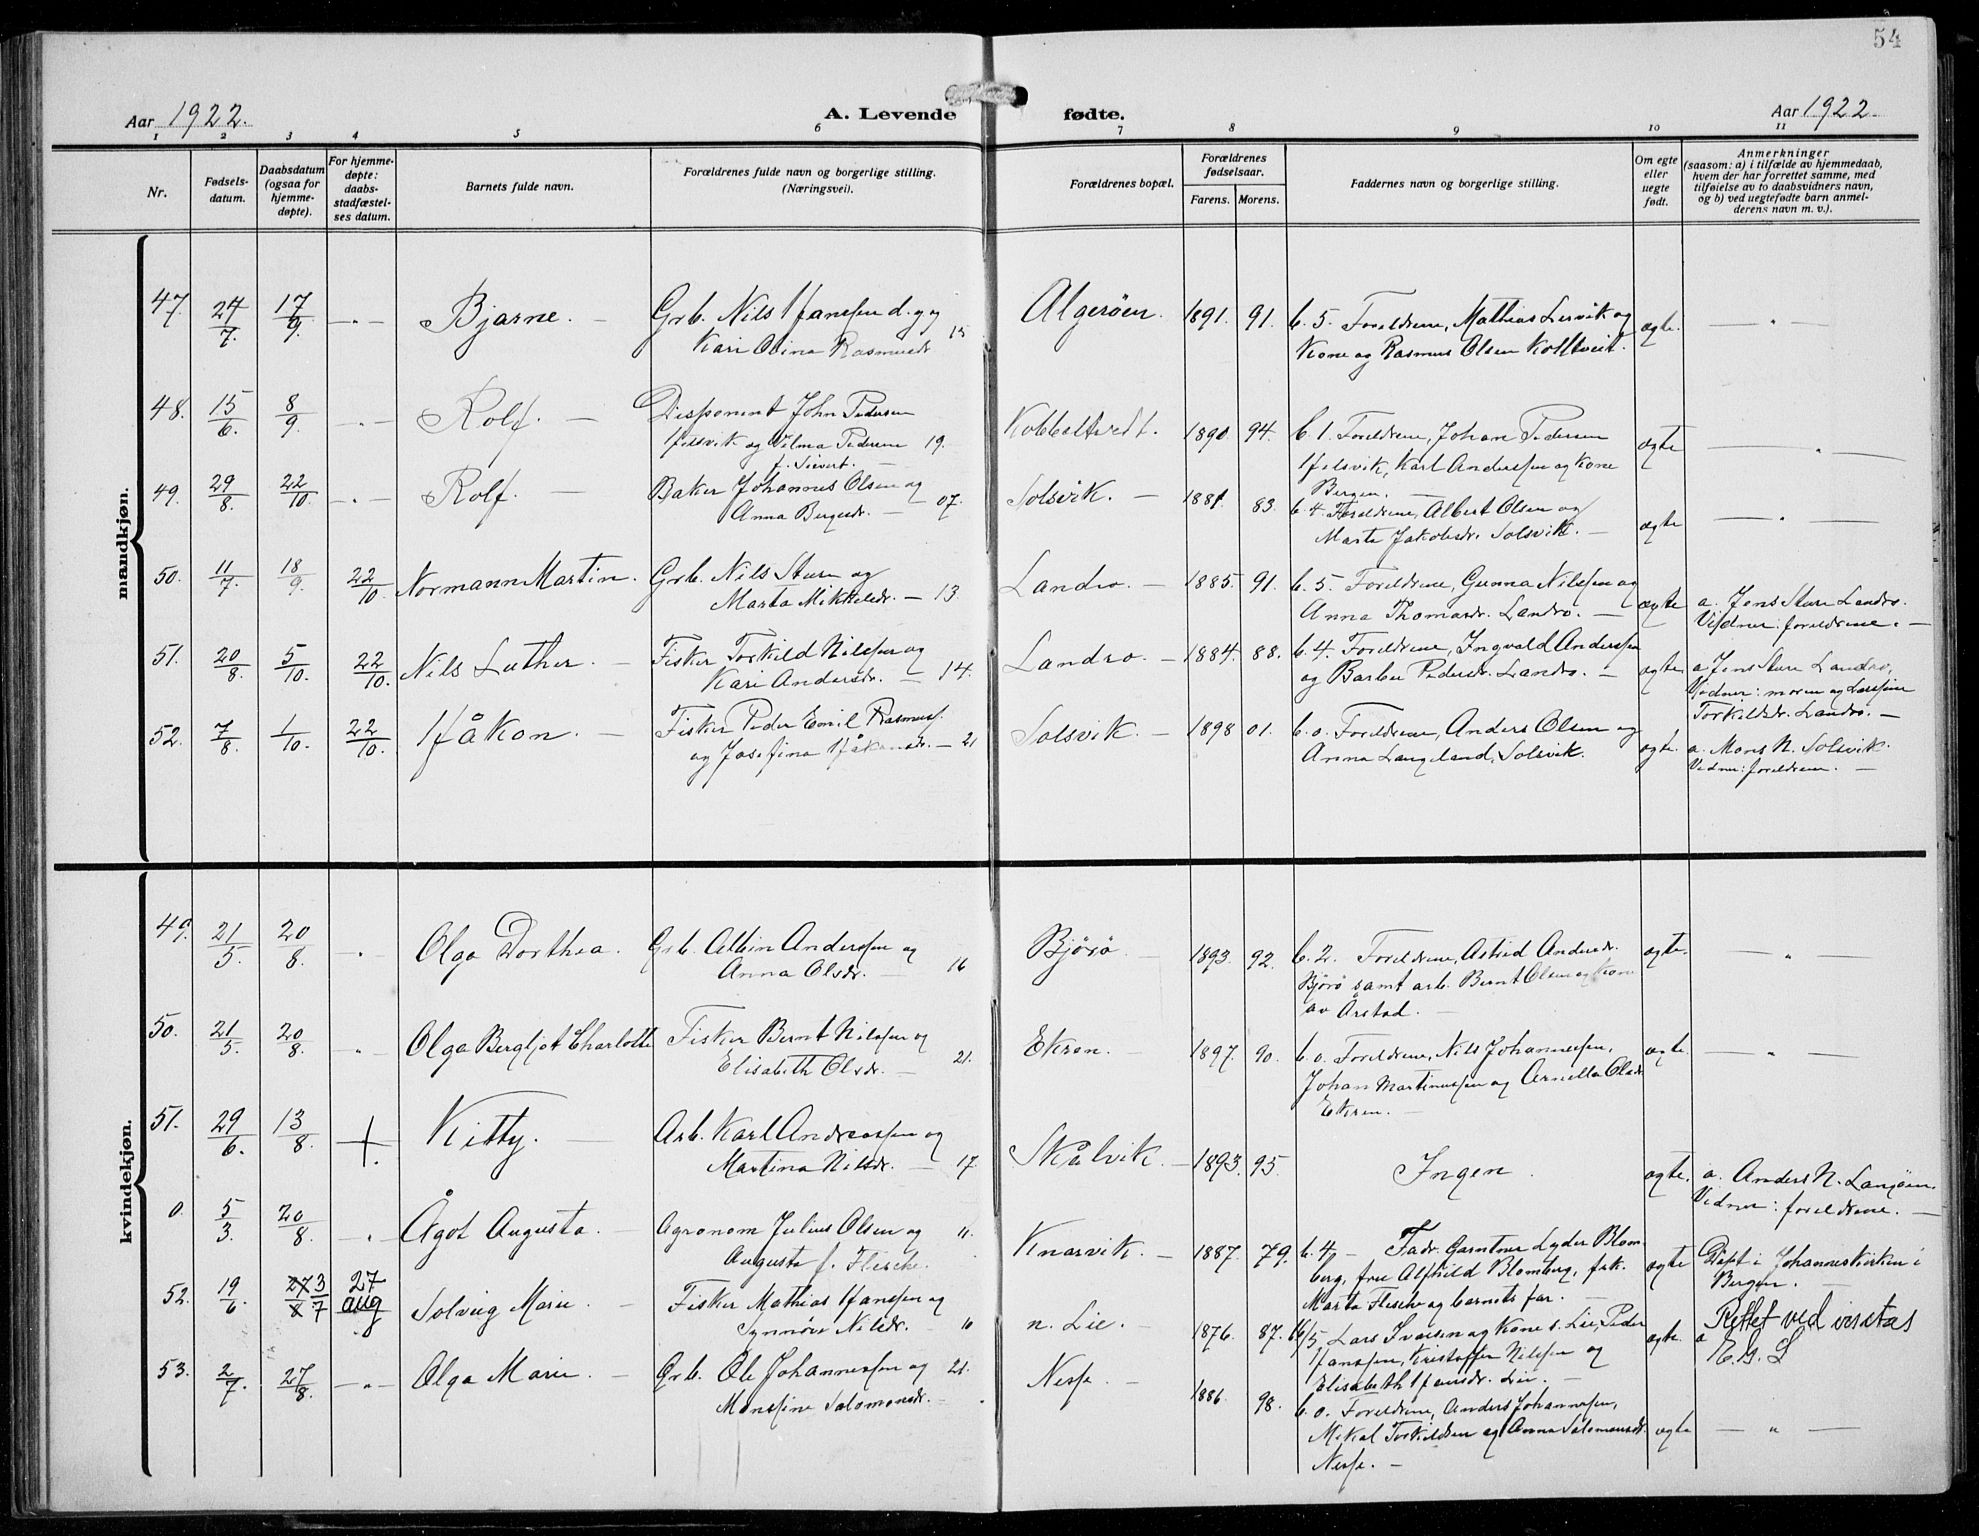 54
Aar 1922.
A. Levende fødte.
Aar 1922.
1 2 3 4 5 6 7 8 9 10 11
Nr.
Fødsels-
datum.
Daabsdatum
(ogsaa for
hjemme-
døpte).
For hjemme-
døpte:
daabs-
stadfæstel-
ses datum.
Barnets fulde navn.
Forældrenes fulde navn og borgerlige stilling.
(Næringsvei).
Forældrenes bopæl.
Forældrenes
fødselsaar.
Farens. Morens.
Faddernes navn og borgerlige stilling.
Om egte
eller
uegte
født.
Anmerkninger
(saasom: a) i tilfælde av hjemmedaab,
hvem der har forrettet samme, med
tilføielse av to daabsvidners navn,
og b) ved uegtefødte barn anmel-
derens navn m. v.).
mandkjøn.
47. 24/7. 17/9. —„— Bjarne. — Grb. Nils Hanssen d.y. og
Kari Olina Rasmusdr. 15
Algerøen. 1891. 91. b. 5. Foreldrene, Mathias Lervik og
Kone og Rasmus Olsen Kolltveit. egte. — „ —
48. 15/6. 8/9. —„— Rolf. — Disponent John Pedersen
Hilsvik og Vilma Pedersen 19.
f. Sievert. —
Kobbeltvedt. 1890. 94. b 1. Foreldrene, Johan Pedersen
Hilsvik, Karl Anderssen og Kone
Bergen. — egte — „ —
49. 29/8. 22/10. —„— Rolf. — Baker Johannes Olsen og
Anna Bergesdr. — 07.
Solsvik. — 1881. 83. b. 4. Foreldrene, Albert Olsen og
Marta Jakobsdr. Solsvik. — egte — „ —
50. 11/7. 18/9. 22/10. Normann Martin. Grb. Nils Sture og
Marta Mikkelsdr. — 13.
Landro. — 1885. 91. b. 5. Foreldrene, Gunna Nilssen og
Anna Thomasdr. Landro. — egte a. Jens Sture Landro.
Vidner: foreldrene. —
51. 20/8. 5/10. 22/10. Nils Luther. — Fisker Torkild Nilssen og
Kari Andersdr. — 14.
Landro. — 1884. 88. b. 4. Foreldrene, Ingvald Anderssen
og Barbu Pedersdr. Landro. — egte. a. Jens Sture Landro,
Vidner: moren og
Torkildsdr. Landro. —
52. 7/8. 1/10. 22/10. Håkon. — Fisker Peder Emil Rasmuss.
og Josefina Håkonsdr. — 21
Solsvik. — 1898 01. b. o. Foreldrene, Anders Olsen og
Anna Langeland, Solsvik. egte. a. Mons N. Solsvik.
Vidner: foreldrene. —
kvindekjøn.
49. 21/5. 20/8. —„— Olga Dorthea. Grb. Albin Anderssen og
Anna Olsdr. — 16
Bjørø — 1893. 92. b. 2. Foreldrene, Astrid Andersdr.
Bjørø samt arb. Bernt Olsen og Kone
av Årstad. — egte. — „ —
50. 21/5. 20/8. —„— Olga Bergljot Charlotte Fisker Bernt Nilssen og
Elisabeth Olsdr. — 21.
Ekren. — 1897. 90. b. o. Foreldrene, Nils Johannessen,
Johan Martinussen og Arnella Olsdr
Ekren. — egte. — „ —
51. 29/6. 13/8. +. Kitty. — Arb. Karl Andreassen og
Martina Nilsdr. — 17.
Skålvik. — 1893. 95. Ingen. egte. a. Anders N. Langøen.
Vidner: foreldrene. —
0. 5/3. 20/8. —„— Ågot Augusta. — Agronom Julius Olsen og 11.
Augusta f. Flesche.
Knarvik. — 1887. 79. b. 4 — Fadr. Gartner Lyder Blom-
berg, frue Alfhild Blomberg, frk.
Marta Flesche og barnets far. — egte Døpt i Johanneskirken i
Bergen. —
52. 19/6. 27/8 3/7 27 aug Solveig Marie. — Fisker Mathias Hanssen og
Synnøve Nilsdr. — 10
n. Lie. — 1876. 87. b/5 Lars Ivarsen og Kone s. Lie, Peder
Hanssen, Kristoffer Nilssen og
Elisabeth Hansdr. Lie. — egte. Rettet ved
E. G. L
53. 2/7. 27/8. —„— Olga Marie. — Grb. Ole Johannessen og 21.
Monsine Salomonsdr. —
Nesse. — 1886. 98. b. o. Foreldrene, Anders Johannessen,
Mikal Torkildsen og Anna Salomonsdr.
Nesse. — egte — „ —